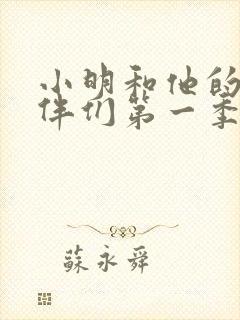 小明和他的
伴们第一季
蘇永舜